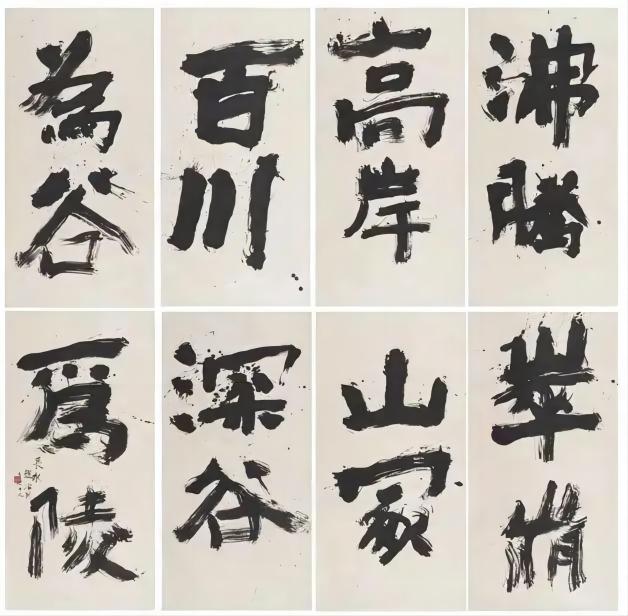 沸騰
高岸
百川
為谷
崒崩
山冢
深谷
爲陵